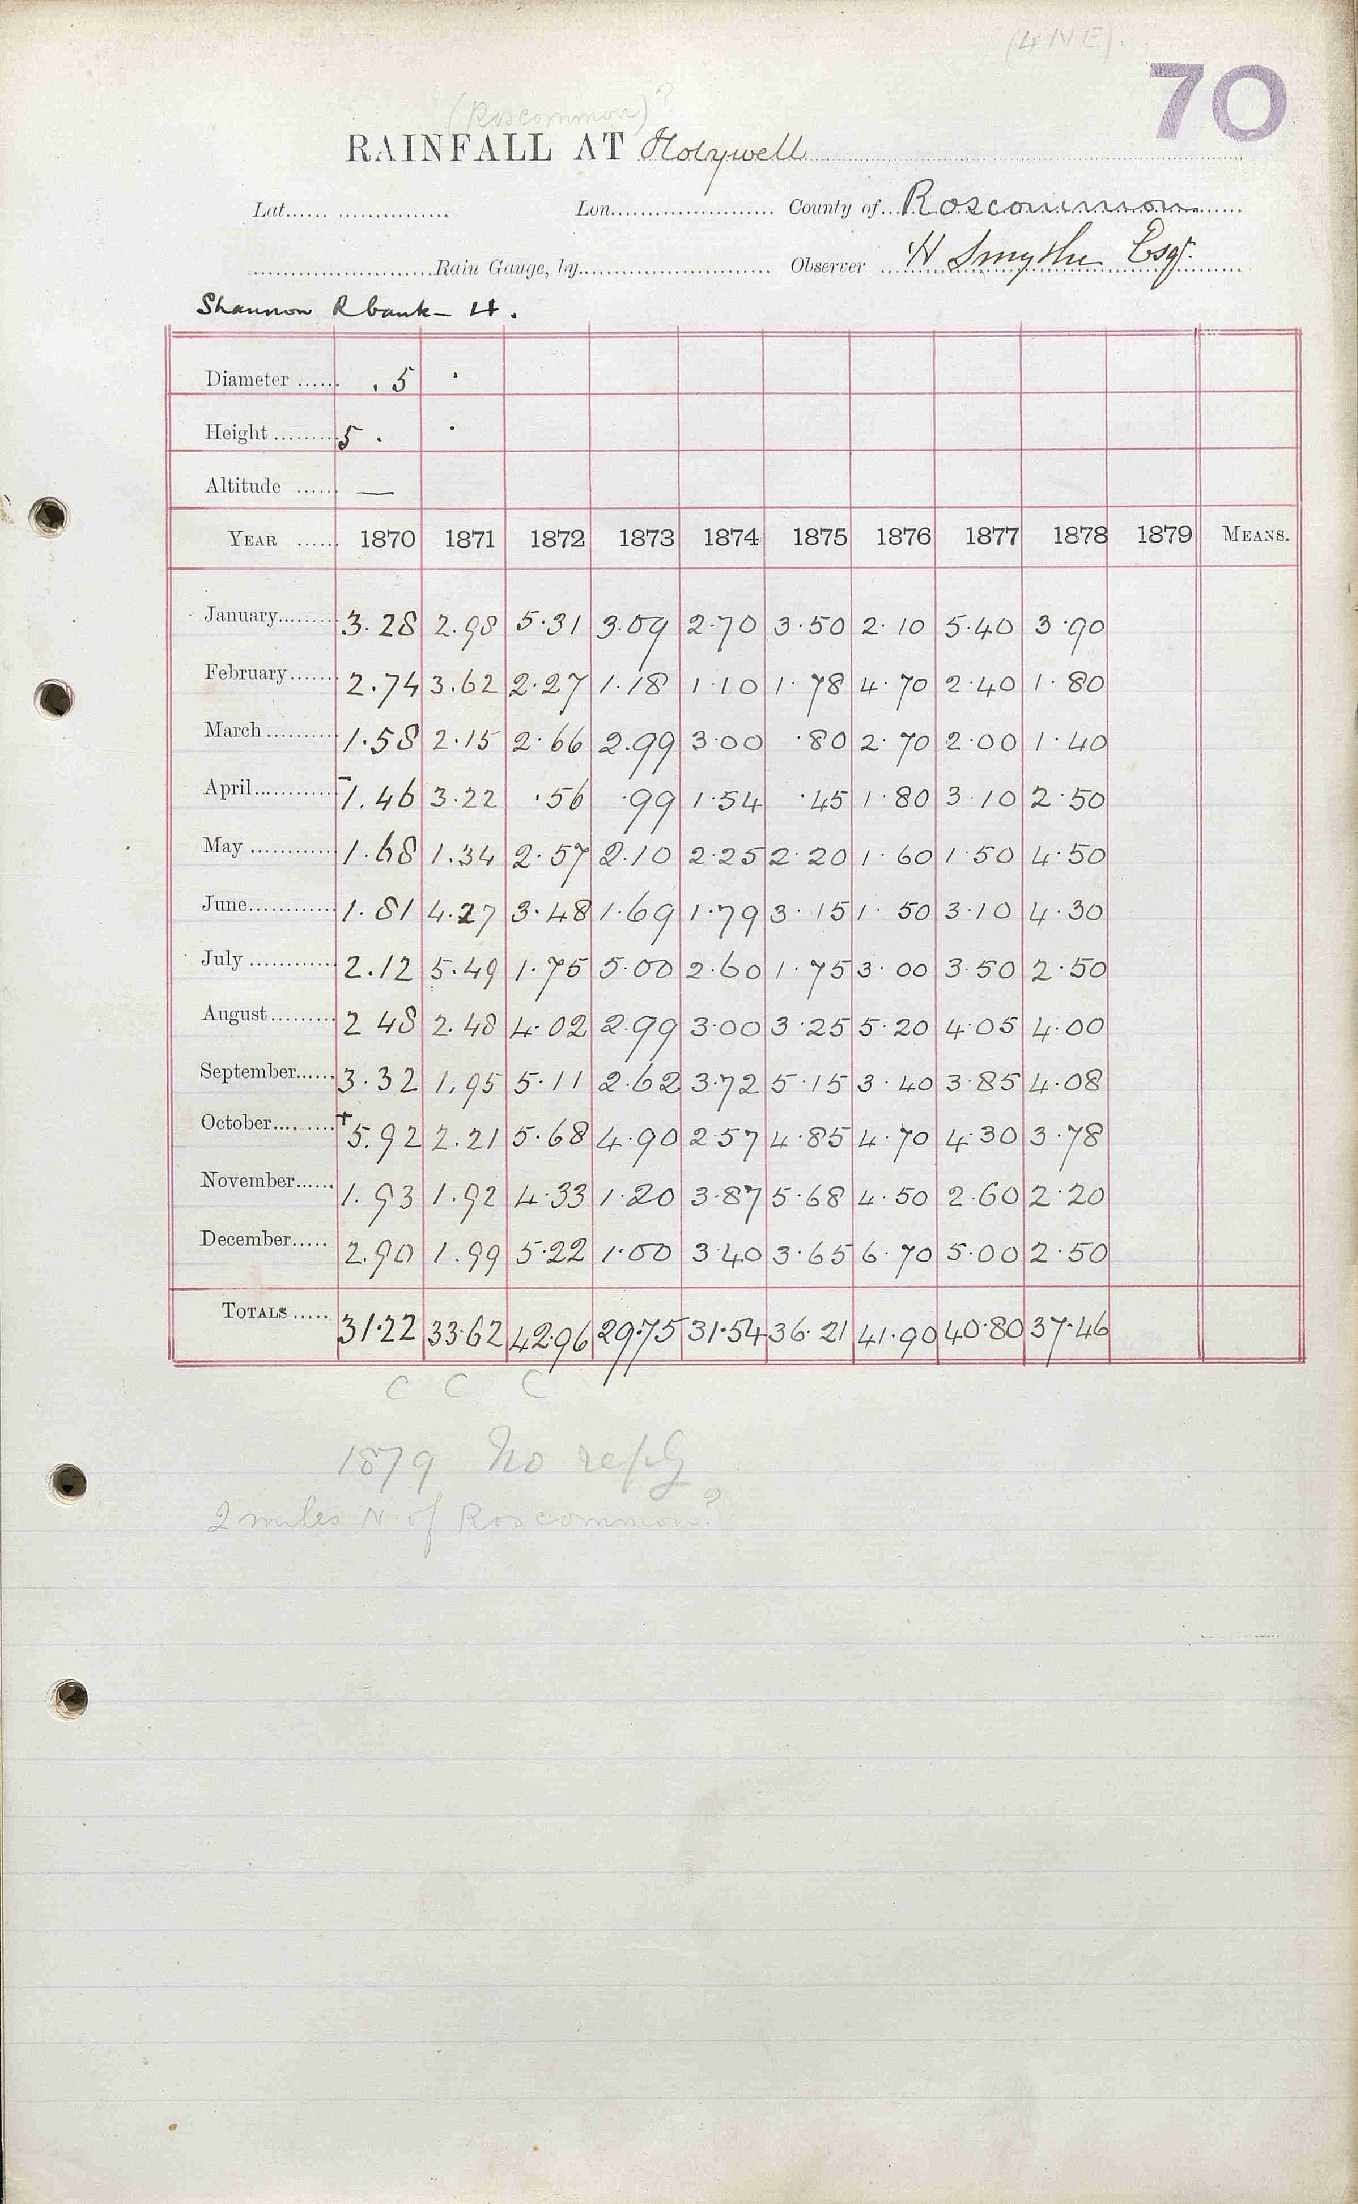 (4 NE).
70
(Roscommon)?
RAINFALL AT Holywell
Lat. Lon. County of Roscommon
Rain Gauge, by Observer H Smythe Esqr.
Shannon R bank - H.
Diameter .5 .
Height 5 . .
Altitude —
YEAR 1870 1871 1872 1873 1874 1875 1876 1877 1878 1879 MEANS.
January 3.28 2.98 5.31 3.09 2.70 3.50 2.10 5.40 3.90
February 2.74 3.62 2.27 1.18 1.10 1.78 4.70 2.40 1.80
March 1.58 2.15 2.66 2.99 3.00 .80 2.70 2.00 1.40
April -1.46 3.22 .56 .99 1.54 .45 1.80 3.10 2.50
May 1.68 1.34 2.57 2.10 2.25 2.20 1.60 1.50 4.50
June 1.81 4.27 3.48 1.69 1.79 3.15 1.50 3.10 4.30
July 2.12 5.49 1.75 5.00 2.60 1.75 3.00 3.50 2.50
August 2 48 2.48 4.02 2.99 3.00 3.25 5.20 4.05 4.00
September 3.32 1.95 5.11 2.62 3.72 5.15 3.40 3.85 4.08
October +5.92 2.21 5.68 4.90 2.57 4.85 4.70 4.30 3.78
November 1.93 1.92 4.33 1.20 3.87 5.68 4.50 2.60 2.20
December 2.90 1.99 5.22 1.00 3.40 3.65 6.70 5.00 2.50
TOTALS 31.22 33.62 42.96 29.75 31.54 36.21 41.90 40.80 37.46
C C C
1879 No reply
2 miles N. of Roscommon?